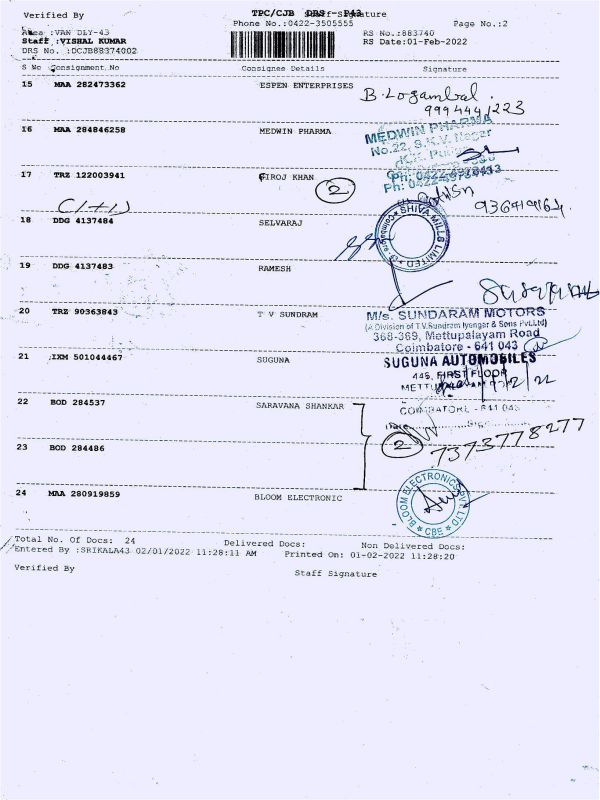 Verified By TPC/CJB DRS - P43 Staff Signature
Phone No.:0422-3505555 Page No.:2
Area :VAN DLY-43 RS No.:883740
Staff :VISHAL KUMAR RS Date:01-Feb-2022
DRS No. :DCJB88374002
S No Consignment.No Consignee Details Signature
15 MAA 282473362 ESPEN ENTERPRISES
B. Logambal.
9994441223
16 MAA 284846258 MEDWIN PHARMA
MEDWIN PHARMA
No.22, S.K.V. Nagar
Ph: 0422-4978413
17 TRZ 122003941 FIROJ KHAN
2
(1+1)
18 DDG 4137484 SELVARAJ
SHIVA MILLS LIMITED
19 DDG 4137483 RAMESH
20 TRZ 90363843 T V SUNDRAM
M/s. SUNDARAM MOTORS
(A Division of T.V.Sundram Iyengar & Sons Pvt.Ltd)
368-369, Mettupalayam Road
Coimbatore - 641 043
21 IXM 501044467 SUGUNA
SUGUNA AUTOMOBILES
446, FIRST FLOOR
22 BOD 284537 SARAVANA SHANKAR
COIMBATORE - 641 043
2
7373778277
23 BOD 284486
24 MAA 280919859 BLOOM ELECTRONIC
BLOOM ELECTRONICS PVT. LTD
CBE
Total No. Of Docs: 24 Delivered Docs: Non Delivered Docs:
Entered By :SRIKALA43 02/01/2022 11:28:11 AM Printed On: 01-02-2022 11:28:20
Verified By Staff Signature